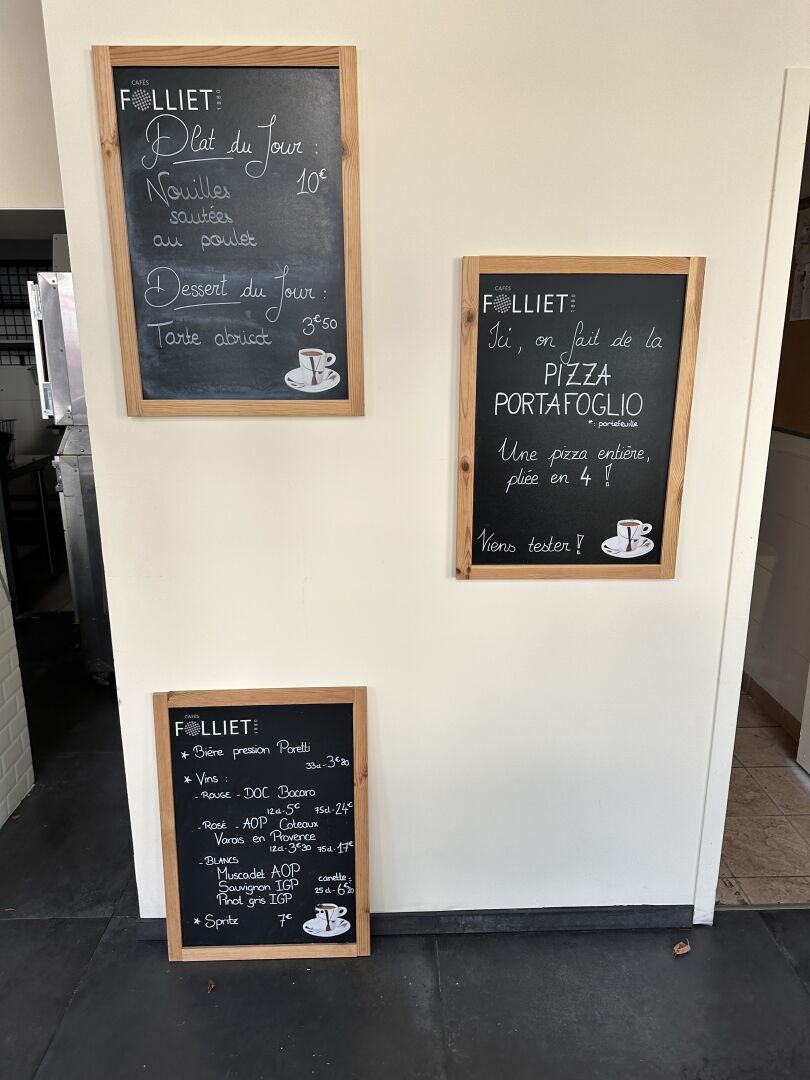 CAFÉS
FOLLIET 1880
Plat du Jour :
Nouilles 10€
sautées
au poulet
Dessert du Jour :
Tarte abricot 3€50
CAFÉS
FOLLIET 1880
Ici, on fait de la
PIZZA
PORTAFOGLIO
*: portefeuille
Une pizza entière,
pliée en 4 !
Viens tester !
CAFÉS
FOLLIET 1880
* Bière pression Poretti
33cl - 3€80
* Vins :
- ROUGE - DOC Bocaro
12cl - 5€ 75cl - 24€
- ROSÉ - AOP Coteaux
Varois en Provence
12cl - 3€30 75cl - 17€
- BLANCS
Muscadet AOP
Sauvignon IGP
Pinot gris IGP
canette :
25cl - 6€20
* Spritz 7€